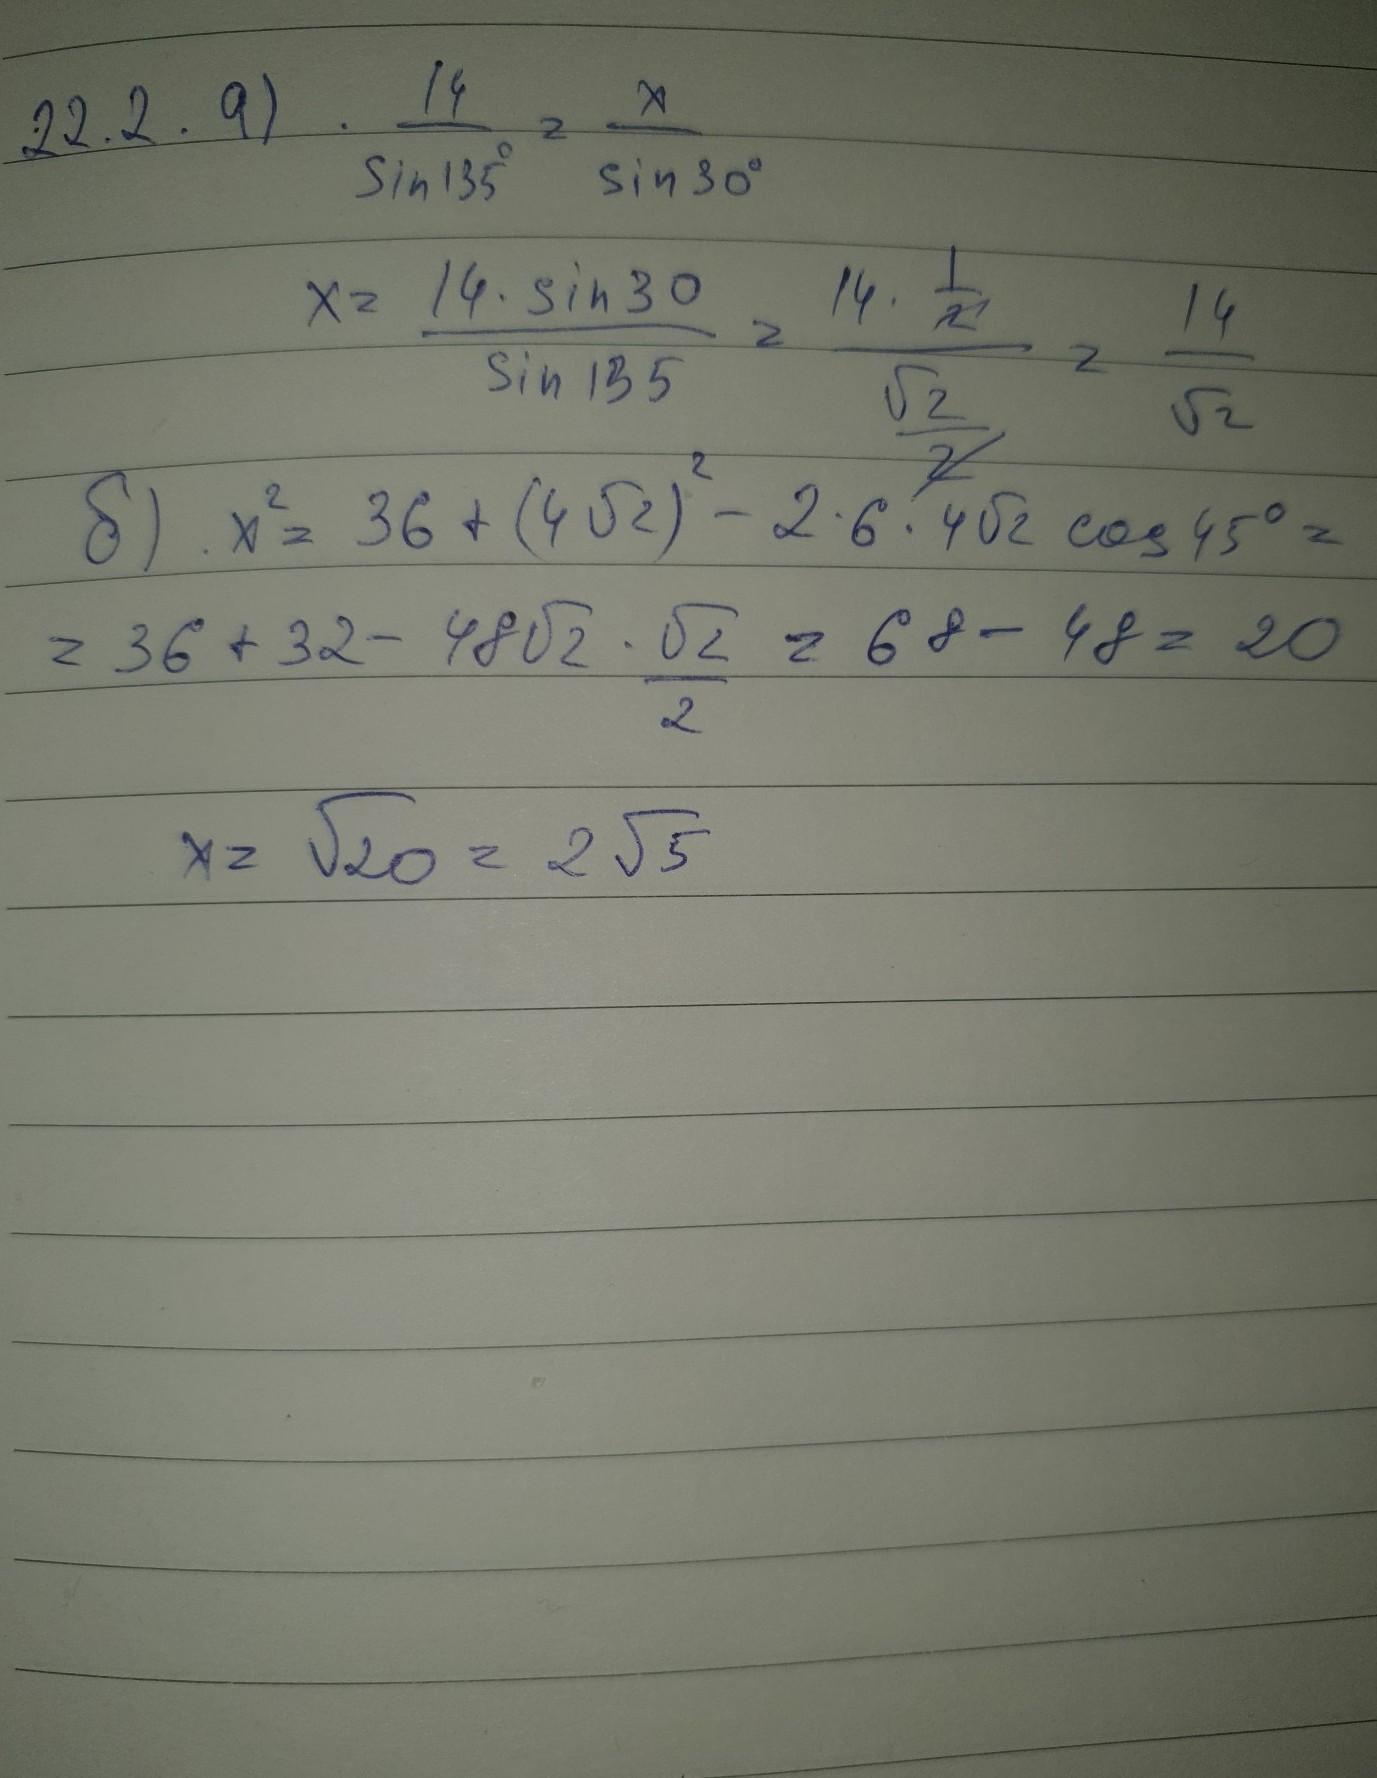 22.2. а) . 14/sin135° = x/sin30°
x = 14·sin30/sin135 = 14·1/2/√2/2 = 14/√2
б) . x² = 36 + (4√2)² - 2·6·4√2 cos45° =
= 36 + 32 - 48√2 · √2/2 = 68 - 48 = 20
x = √20 = 2√5